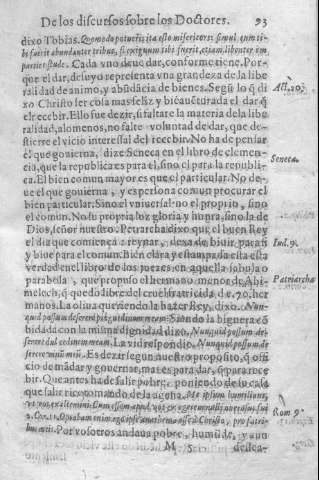 De los discursos sobre los Doctores. 93
dixo Tobias. Quomodo potueris ita esto misericors
fuerit abundanter tribue, si exiguum tibi fuerit, etiam libenter im
partiri stude. Cada vno deue dar, conforme tiene. Por-
que el dar, de suyo representa vna grandeza de la libe
ralidad de animo, y abũdãcia de bienes. Segũ lo q̃ di
xo Christo ser cosa mas feliz y bicauẽturada el dar q̃
el recebir. Ello fue dezir, si faltare la materia de la libe
ralidad, alomenos, no falte voluntad de dar, que de-
stierre el vicio interessal del recebir. No ha de pensar
el que gouierna, dize Seneca en el libro de clemen-
cia, que la republica es para el, sino el para la republi-
ca. El bien comun mayor es que el particular. No de-
ue el que gouierna, y es persona comun procurar el
bien particular. Sino el vniuersal no el proprio, sino
el comun. No su propria gloria y honra, sino la de
Dios, señor nuestro. Petrarcha dixo que el buen Rey
el dia que comiença a reynar, dexa de biuir para si
y biue para el comun. Bien clara y estampada esta esta
verdad en el libro de los juezes en aquella fabula o
parabola, que propuso el hermano menor de Abi-
melech, q̃ quedo libre del cruel fratricida de .70. her
manos. La oliua queriendo la hazer Rey, dixo. Nun-
quid possum deserere pinguedinem meam. Siendo la higuera cõ
bidada con la misma dignidad dixo. Nunquid possum de-
serere dulcedinem meam. La vid respondio. Nunquid possum de
serere vinũ meũ. Es dezir segun nuestro proposito, q̃ offi
cio de mãdar y gouernar, mas es para dar, q̃ para rece
bir. Que antes ha de salir pobre, poniendo de su casa
que salir rico
Por vosotros andaua pobre, humilde, y aun
M 5 dessea-
Act. 20.
Seneca.
Iud. 9.
Patriarcha
Rom 9.